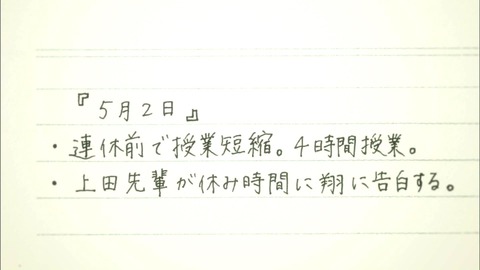 『5月2日』
・連休前で授業短縮。4時間授業。
・上田先輩が休み時間に翔に告白する。